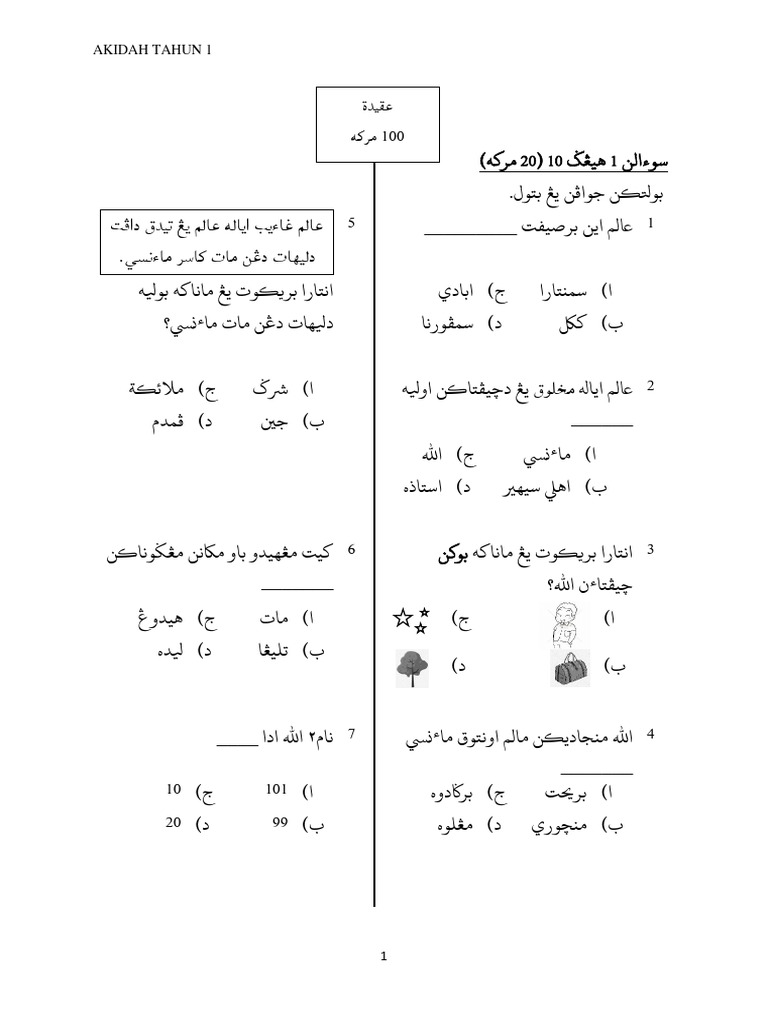 AKIDAH TAHUN 1
عقيدة
100 مركه
سوءالن 1 هيڠݢ 10 (20 مركه)
بولتكن جواڤن يڠ بتول.
1 عالم اين برصيفت __________
ا) سمنتارا ج) ابادي
ب) ككل د) سمڤورنا
2 عالم اياله مخلوق يڠ دچيڤتاكن اوليه
_______
ا) ماءنسي ج) الله
ب) اهلي سيهير د) استاذه
3 انتارا بريكوت يڠ ماناكه بوكن
چيڤتاءن الله؟
ا) ج)
ب) د)
4 الله منجاديكن مالم اونتوق ماءنسي
________
ا) بريحت ج) برݢادوه
ب) منچوري د) مڠلوه
5 عالم غاءيب اياله عالم يڠ تيدق داڤت
دليهات دڠن مات كاسر ماءنسي.
انتارا بريكوت يڠ ماناكه بوليه
دليهات دڠن مات ماءنسي؟
ا) شرݢ ج) ملائكة
ب) جين د) ڤمدم
6 كيت مڠهيدو باو مكانن مڠݢوناكن
________
ا) مات ج) هيدوڠ
ب) تليڠا د) ليده
7 نام٢ الله ادا _____
ا) 101 ج) 10
ب) 99 د) 20
1